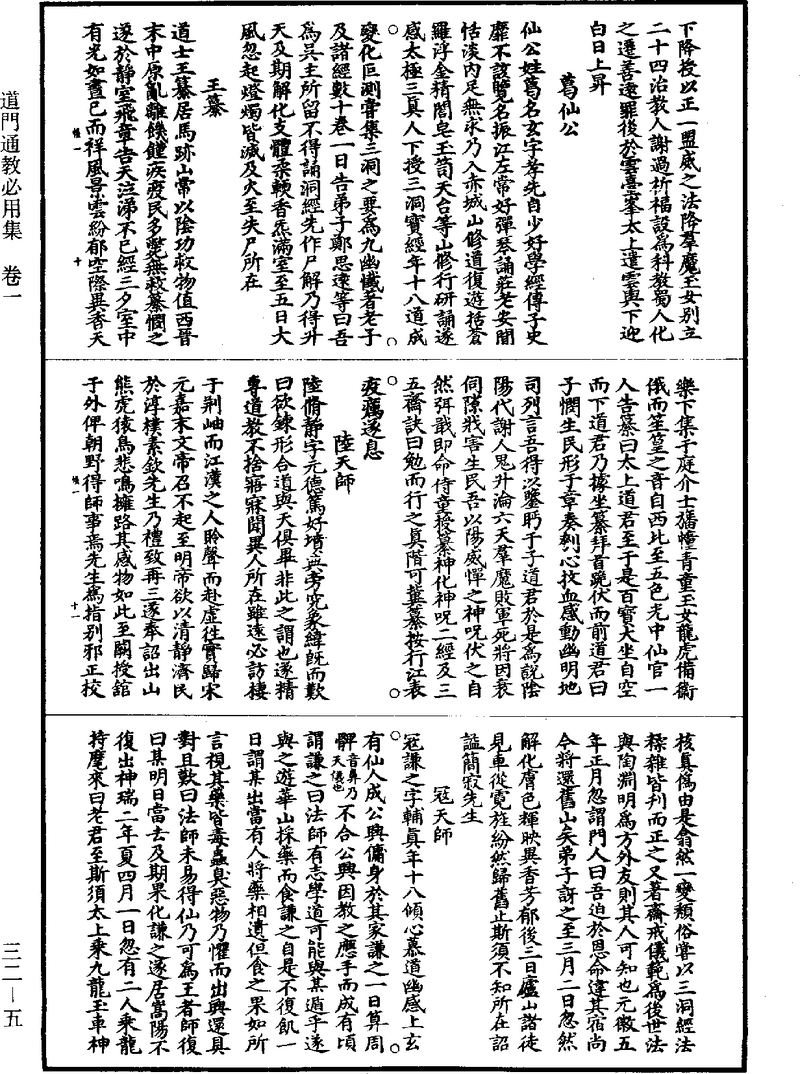 下降授以正一盟威之法降羣魔玉女别立
二十四治教人謝過祈福設爲科教蜀人化
之遷善遠罪後於雲臺峯太上遣雲輿下迎
白日上昇
葛仙公
仙公姓葛名玄字孝先自少好學經傳子史
靡不該覽名振江左常好彈琴誦莊老安閒
恬淡内足無求乃入赤城山修道復遊括蒼
羅浮金精閤皂玉笥天台等山修行研誦遂
感太極三真人下授三洞寶經年十八道成
變化叵測嘗集三洞之要爲九幽懺者老子
及諸經數十卷一日告弟子鄭思遠等曰吾
爲吳主所留不得誦洞經先作尸解乃得升
天及期解化支體柔輭香炁滿室至五日大
風忽起燈燭皆滅及火至失尸所在
王纂
道士王纂居馬跡山常以陰功救物值西晉
末中原亂離饑饉疾疫民多斃無救纂憫之
遂於静室飛章告天泣涕不已經三夕室中
有光如晝已而祥風景雲紛郁空際異香天
樂下集于庭介士旛幢青童玉女龍虎備衛
俄而笙簧之音自西北至五色光中仙官一
人告纂曰太上道君至于是百寶大坐自空
而下道君乃據坐纂拜首跪伏而前道君曰
子憫生民形于章奏刳心抆血感動幽明地
司列言吾得以鑒眄于子道君於是爲說陰
陽代謝人鬼升淪六天羣魔敗軍死將因衰
伺隙戕害生民吾以陽威憚之神呪伏之自
然弭戢即命侍童授纂神化神呪二經及三
五齋訣曰勉而行之真階可冀纂按行江表
疫癘遂息
陸天師
陸脩静字元德篤好墳典旁究象緯既而歎
曰欲錬形合道與天俱畢非此之謂也遂精
專道教不捨寤寐聞異人所在雖遠必訪棲
于荆岫而江漢之人聆聲而赴虛往實歸宋
元嘉末文帝召不起至明帝欲以清静濟民
於淳樸素欽先生乃禮致再三遂奉詔出山
熊虎猿鳥悲鳴擁路其感物如此至闕授舘
于外俾朝野得師事焉先生爲指别邪正校
核真僞由是翕然一變頹俗嘗以三洞經法
糅雜皆刋而正之又著齋戒儀範爲後世法
與陶淵明爲方外友則其人可知也元徽五
年正月忽謂門人曰吾迫於恩命違其宿尚
今將還舊山矣弟子訝之至三月二日忽然
解化膚色輝映異香芳郁後三日廬山諸徒
見車從霓旌紛然歸舊止斯須不知所在詔
謚簡寂先生
寇天師
寇謙之字輔真年十八傾心慕道幽感上玄
有仙人成公興傭身於其家謙之一日算周
髀音鼻乃天儀也不合公興因教之應手而成有頃
謂謙之曰法師有志學道可能與某遁乎遂
與之遊華山採藥而食謙之自是不復飢一
日謂某出當有人將藥相遺但食之果如所
言視其藥皆毒蟲臭惡物乃懼而出興還具
對且歎曰法師未易得仙乃可爲王者師復
曰某明日當去及期果化謙之遂居嵩陽不
復出神瑞二年夏四月一日忽有二人乘龍
持麾來曰老君至斯須太上乘九龍玉車神
道門通教必用集 卷一
三二—五
十
十一